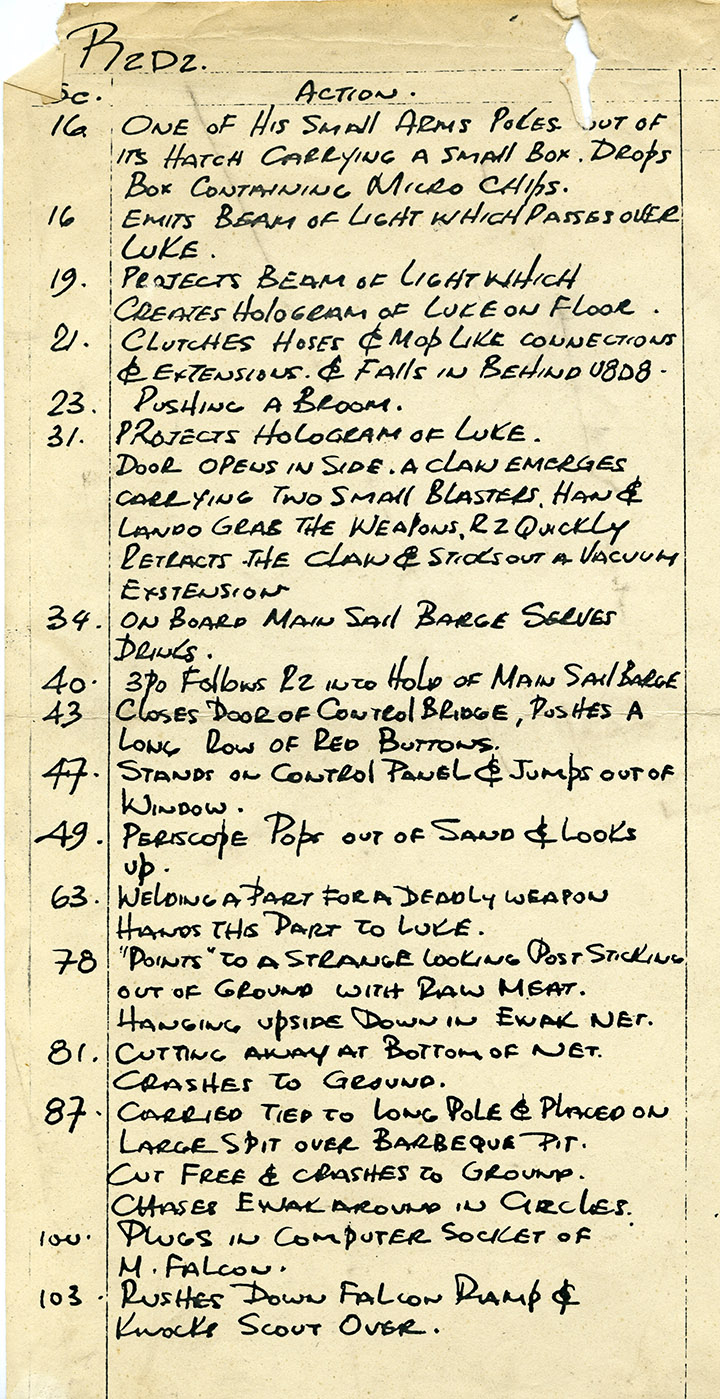 R2D2.
Sc. ACTION.
16a ONE OF HIS SMALL ARMS POKES OUT OF
ITS HATCH CARRYING A SMALL BOX. DROPS
BOX CONTAINING MICRO CHIPS.
16 EMITS BEAM OF LIGHT WHICH PASSES OVER
LUKE.
19. PROJECTS BEAM OF LIGHT WHICH
CREATES HOLOGRAM OF LUKE ON FLOOR.
21. CLUTCHES HOSES & MOP LIKE CONNECTIONS
& EXTENSIONS. & FALLS IN BEHIND U8D8.
23. PUSHING A BROOM.
31. PROJECTS HOLOGRAM OF LUKE.
DOOR OPENS IN SIDE. A CLAW EMERGES
CARRYING TWO SMALL BLASTERS. HAN &
LANDO GRAB THE WEAPONS. R2 QUICKLY
RETRACTS THE CLAW & STICKS OUT A VACUUM
EXSTENSION
34. ON BOARD MAIN SAIL BARGE SERVES
DRINKS.
40. 3PO FOLLOWS R2 INTO HOLD OF MAIN SAIL BARGE
43 CLOSES DOOR OF CONTROL BRIDGE, PUSHES A
LONG ROW OF RED BUTTONS.
47. STANDS ON CONTROL PANEL & JUMPS OUT OF
WINDOW.
49. PERISCOPE POPS OUT OF SAND & LOOKS
UP.
63. WELDING A PART FOR A DEADLY WEAPON
HANDS THIS PART TO LUKE.
78 "POINTS" TO A STRANGE LOOKING POST STICKING
OUT OF GROUND WITH RAW MEAT.
HANGING UPSIDE DOWN IN EWAK NET.
81. CUTTING AWAY AT BOTTOM OF NET.
CRASHES TO GROUND.
87. CARRIED TIED TO LONG POLE & PLACED ON
LARGE SPIT OVER BARBEQUE PIT.
CUT FREE & CRASHES TO GROUND.
CHASES EWAK AROUND IN CIRCLES.
100. PLUGS IN COMPUTER SOCKET OF
M. FALCON.
103. RUSHES DOWN FALCON RAMP &
KNOCKS SCOUT OVER.